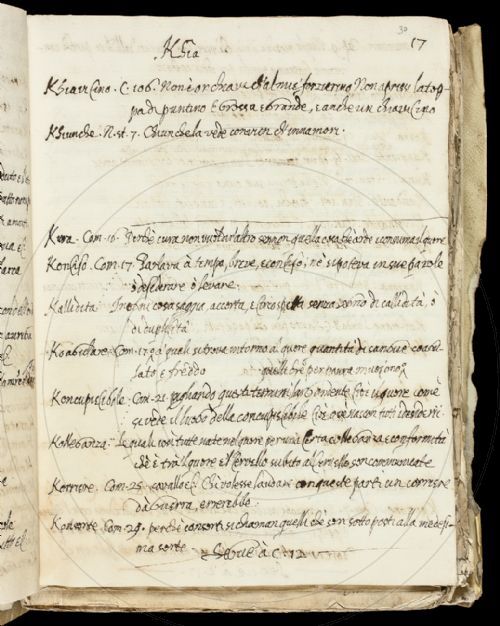 30
17
Khia
Khiavicino. C. 106. Non è or chiave ch'al mio forzierino Non aprisse la top
pa di puntino E Grossa e Grande, e anche un chiavicino
Khiunche. N. st. 7. Chiunche la vede convien ch'innamori.
Kura. Com. 16. Perchè cura non vuol dir altro se non quella cosa che arde consuma il quore
Konciso. Com. 17. Parlava à tempo, breve, e conciso, nè si poteva in sue parole
desiderare ò levare.
Kallidità. In ogni cosa saggia, accorta, e circospetta senza segno di callidità, ò
di duplicità
Koagulare. Com. 17. a quali si trova intorno al quore quantità di sangue coagu-
lato e freddo quelli che per paura muoiono
Koncupiscibile. Com. 21. pigliando questi termini largamente cioè il quore com'è
si vede il luogo della concupiscibile cioè
Kolleganza. le quali con tutte nate nel quore per una certa colleganza e conformità
che è trà il quore e'l cervello subito al cervello son comunicate
Korriere. Com. 25. cavallo che chi volesse laudare con queste parti un corriere
da Guerra, errerebbe.
Konsorte. Com. 29. perchè consorti si chiaman quelli chè son sottoposti alla medesi-
ma sorte Segue à C. 12